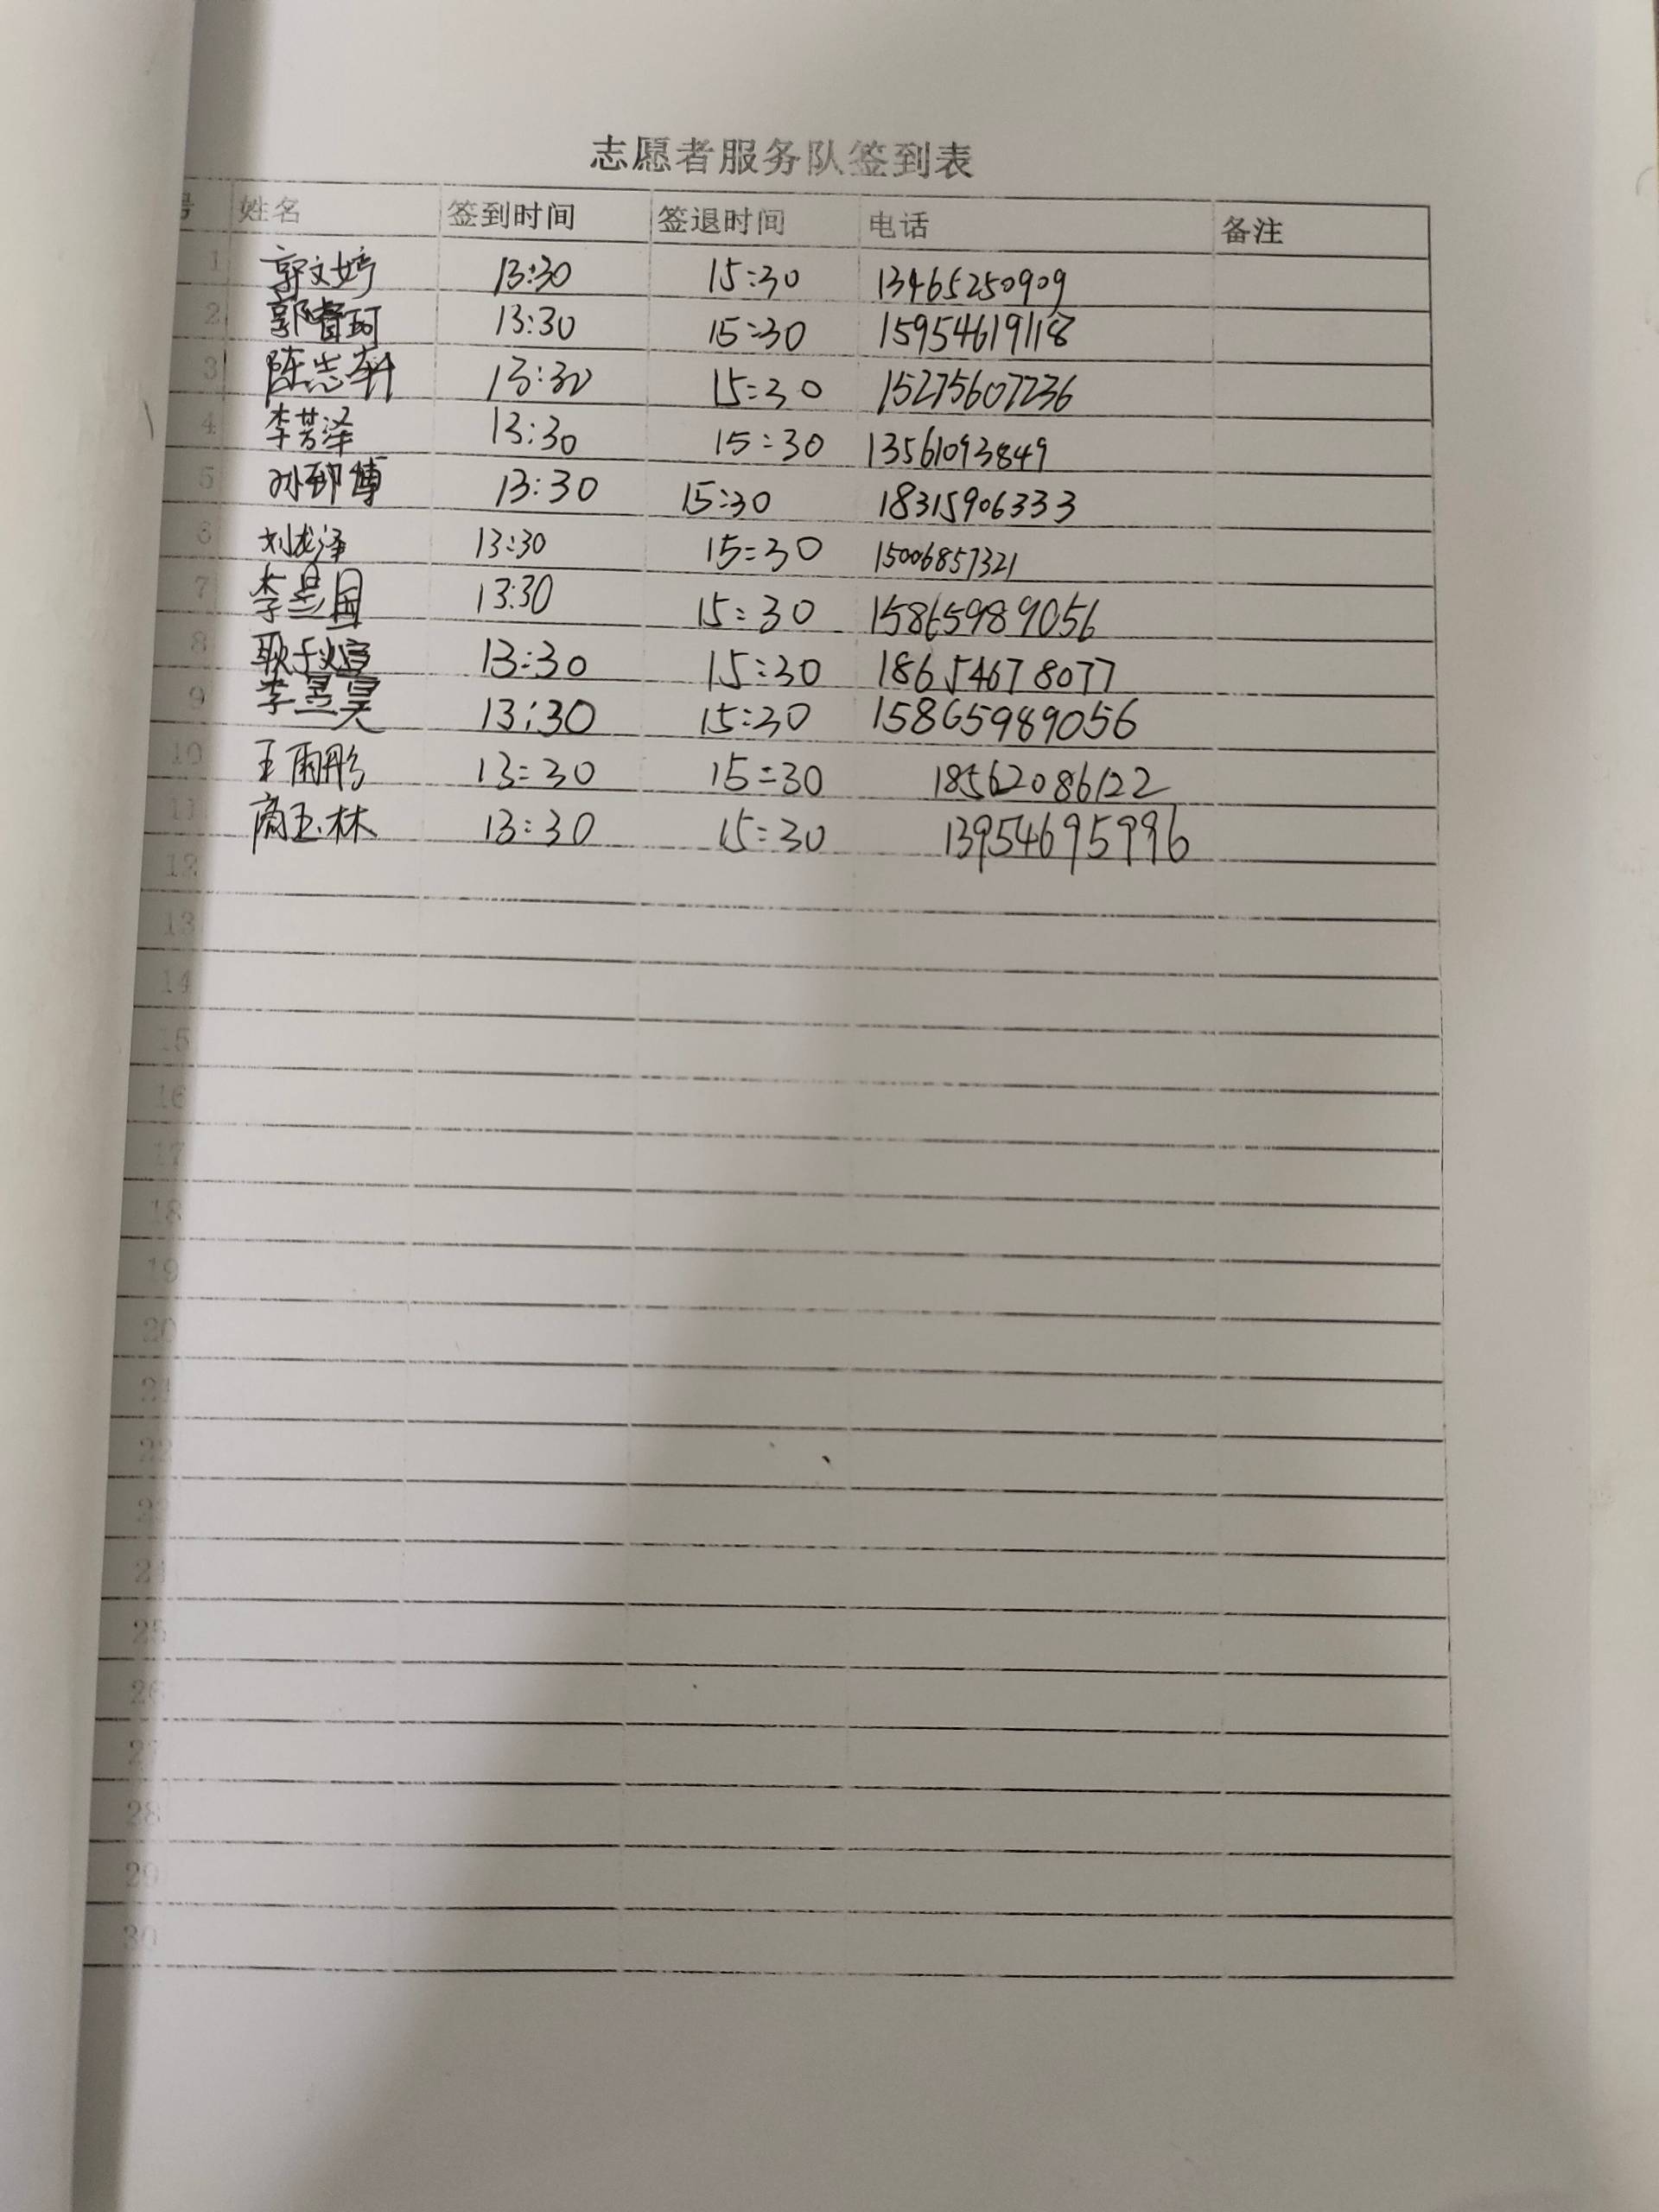 志愿者服务队签到表
号 姓名 签到时间 签退时间 电话 备注
1 郭文婷 13:30 15:30 13465250909
2 郭睿珂 13:30 15:30 15954619118
3 陈志轩 13:30 15:30 15275607236
4 李芳泽 13:30 15:30 13561093849
5 孙郅博 13:30 15:30 18315906333
6 刘龙泽 13:30 15:30 15006857321
7 李昱国 13:30 15:30 15865989056
8 耿子煊 13:30 15:30 18654678077
9 李昱昊 13:30 15:30 15865989056
10 王雨彤 13:30 15:30 18562086122
11 商玉林 13:30 15:30 13954695996
12
13
14
15
16
17
18
19
20
21
22
23
24
25
26
27
28
29
30